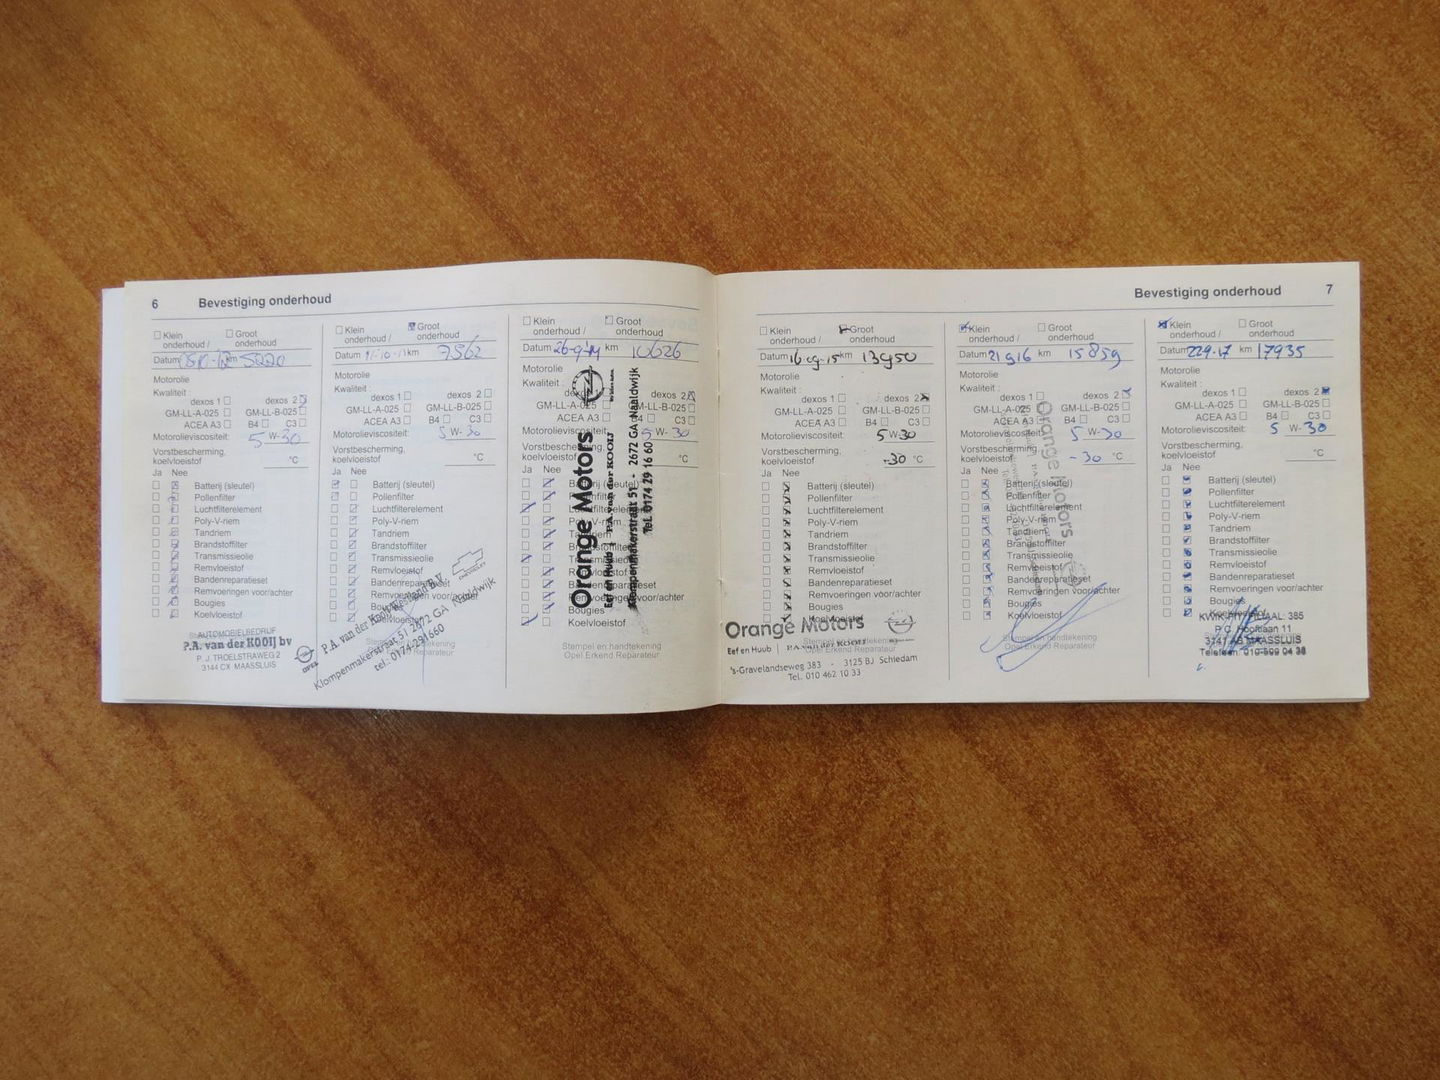 6 Bevestiging onderhoud
Klein onderhoud /
Groot onderhoud
Datum km 5220
Motorolie
Kwaliteit :
dexos 1 dexos 2
GM-LL-A-025 GM-LL-B-025
ACEA A3 B4 C3
Motorolieviscositeit: 5 W-30
Vorstbescherming,
koelvloeistof °C
Ja Nee
Batterij (sleutel)
Pollenfilter
Luchtfilterelement
Poly-V-riem
Tandriem
Brandstoffilter
Transmissieolie
Remvloeistof
Bandenreparatieset
Remvoeringen voor/achter
Bougies
Koelvloeistof
AUTOMOBIELBEDRIJF
P.A. van der KOOIJ bv
P. J. TROELSTRAWEG 2
3144 CX MAASSLUIS
Klein onderhoud /
Groot onderhoud
Datum km 7562
dexos 1 dexos 2
GM-LL-A-025 GM-LL-B-025
ACEA A3 B4 C3
5 W-30
°C
Batterij (sleutel)
Pollenfilter
Luchtfilterelement
Poly-V-riem
Tandriem
Brandstoffilter
Transmissieolie
Remvloeistof
Bandenreparatieset
Remvoeringen voor/achter
Bougies
Koelvloeistof
OPEL
CHEVROLET
P.A. van der Kooij Naaldwijk B.V.
Klompenmakerstraat 51 2672 GA Naaldwijk
tel.: 0174-291660
Stempel en handtekening
Opel Erkend Reparateur
Klein onderhoud /
Groot onderhoud
Datum 26-9-14 km 10626
Motorolie
Kwaliteit :
dexos 1 dexos 2
GM-LL-A-025 GM-LL-B-025
ACEA A3 B4 C3
Motorolieviscositeit: 5 W-30
Vorstbescherming,
koelvloeistof °C
Ja Nee
Batterij (sleutel)
Pollenfilter
Luchtfilterelement
Poly-V-riem
Tandriem
Brandstoffilter
Transmissieolie
Remvloeistof
Bandenreparatieset
Remvoeringen voor/achter
Bougies
Koelvloeistof
Orange Motors
Eef en Huub | P.A. van der KOOIJ
Klompenmakerstraat 51 - 2672 GA Naaldwijk
Tel. 0174 29 16 60
Stempel en handtekening
Opel Erkend Reparateur
Bevestiging onderhoud 7
Klein onderhoud /
Groot onderhoud
Datum 16 09-15 km 13950
Motorolie
Kwaliteit :
dexos 1 dexos 2
GM-LL-A-025 GM-LL-B-025
ACEA A3 B4 C3
Motorolieviscositeit: 5 W-30
Vorstbescherming,
koelvloeistof -30 °C
Ja Nee
Batterij (sleutel)
Pollenfilter
Luchtfilterelement
Poly-V-riem
Tandriem
Brandstoffilter
Transmissieolie
Remvloeistof
Bandenreparatieset
Remvoeringen voor/achter
Bougies
Koelvloeistof
Orange Motors
Eef en Huub | P.A. van der KOOIJ
Stempel en handtekening
Opel Erkend Reparateur
's-Gravelandseweg 383 - 3125 BJ Schiedam
Tel. 010 462 10 33
Klein onderhoud /
Groot onderhoud
Datum 21 9 16 km 15859
dexos 1 dexos 2
GM-LL-A-025 GM-LL-B-025
ACEA A3 B4 C3
5 W-30
-30 °C
Batterij (sleutel)
Pollenfilter
Luchtfilterelement
Poly-V-riem
Tandriem
Brandstoffilter
Transmissieolie
Remvloeistof
Bandenreparatieset
Remvoeringen voor/achter
Bougies
Koelvloeistof
Orange Motors
Stempel en handtekening
Opel Erkend Reparateur
Klein onderhoud /
Groot onderhoud
Datum 22 9-17 km 17935
Motorolie
Kwaliteit :
dexos 1 dexos 2
GM-LL-A-025 GM-LL-B-025
ACEA A3 B4 C3
Motorolieviscositeit: 5 W-30
Vorstbescherming,
koelvloeistof °C
Ja Nee
Batterij (sleutel)
Pollenfilter
Luchtfilterelement
Poly-V-riem
Tandriem
Brandstoffilter
Transmissieolie
Remvloeistof
Bandenreparatieset
Remvoeringen voor/achter
Bougies
Koelvloeistof
KWIK-FIT FILIAAL: 385
P.C. Hooftlaan 11
3141 AB MAASSLUIS
Telefoon: 010-599 04 38